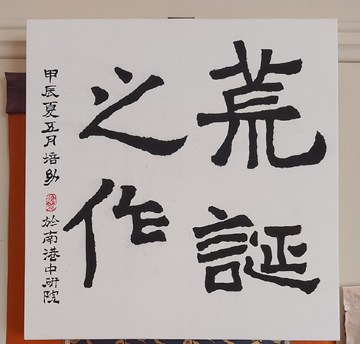 荒誕
之作
甲辰夏五月培勛於南港中研院